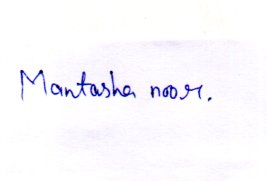 Mantasha noor.